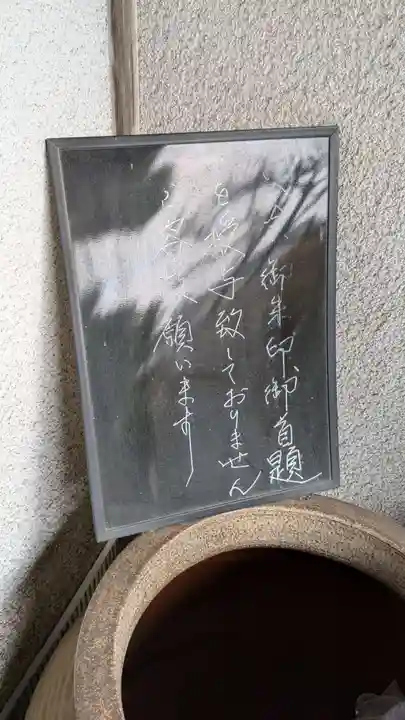 御朱印、御首題
を授与致しておりません
ご容赦願います